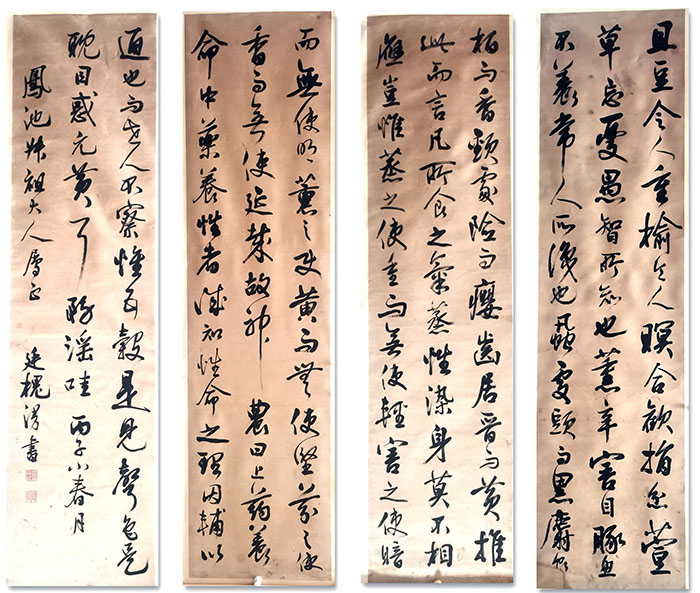 且豆令人重榆令人瞑合歡捐忿萱
草忘憂愚智所知也薰辛害目豚魚
不養常人所識也虱處頭而黑麝食
柏而香頸處險而癭齒居晉而黃推
此而言凡所食之氣蒸性染身莫不相
應豈惟蒸之使重而無使輕害之使暗
而無使明薰之使黃而無使堅芬之使
香而無使延哉故神農曰上藥養
命中藥養性者誠知性命之理因輔以
通也而世人不察惟五穀是見聲色是
耽目惑元黃耳務淫哇 丙子小春月
鳳池叔祖大人屬正
廷槐書